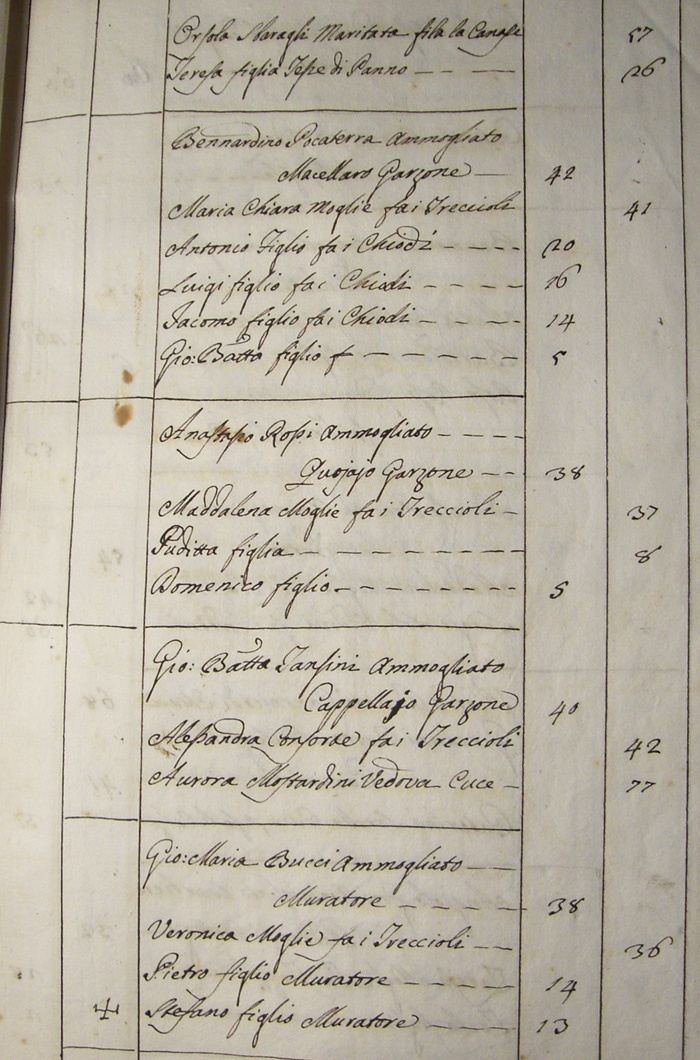 Orsola Sbaragli Maritata fila la Canape 57
Teresa figlia Tesse di Panno 26
Bernnardino Pocaterra Ammogliato
Macellaro Garzone 42
Maria Chiara Moglie fa i Treccioli 41
Antonio Figlio fa i Chiodi 20
Luigi figlio fa i Chiodi 16
Iacomo figlio fa i Chiodi 14
Gio: Batta figlio f 5
Anastasio Rossi Ammogliato
Quojajo Garzone 38
Maddalena Moglie fa i Treccioli 37
figlia 8
Domenico figlio 5
Gio: Batta Tansini Ammogliato
Cappellajo Garzone 40
Alessandra Consorte fa i Treccioli 42
Aurora Mostardini Vedova Cuce 77
Gio: Maria Bucci Ammogliato
Muratore 38
Veronica Moglie fa i Treccioli 36
Pietro figlio Muratore 14
Stefano figlio Muratore 13